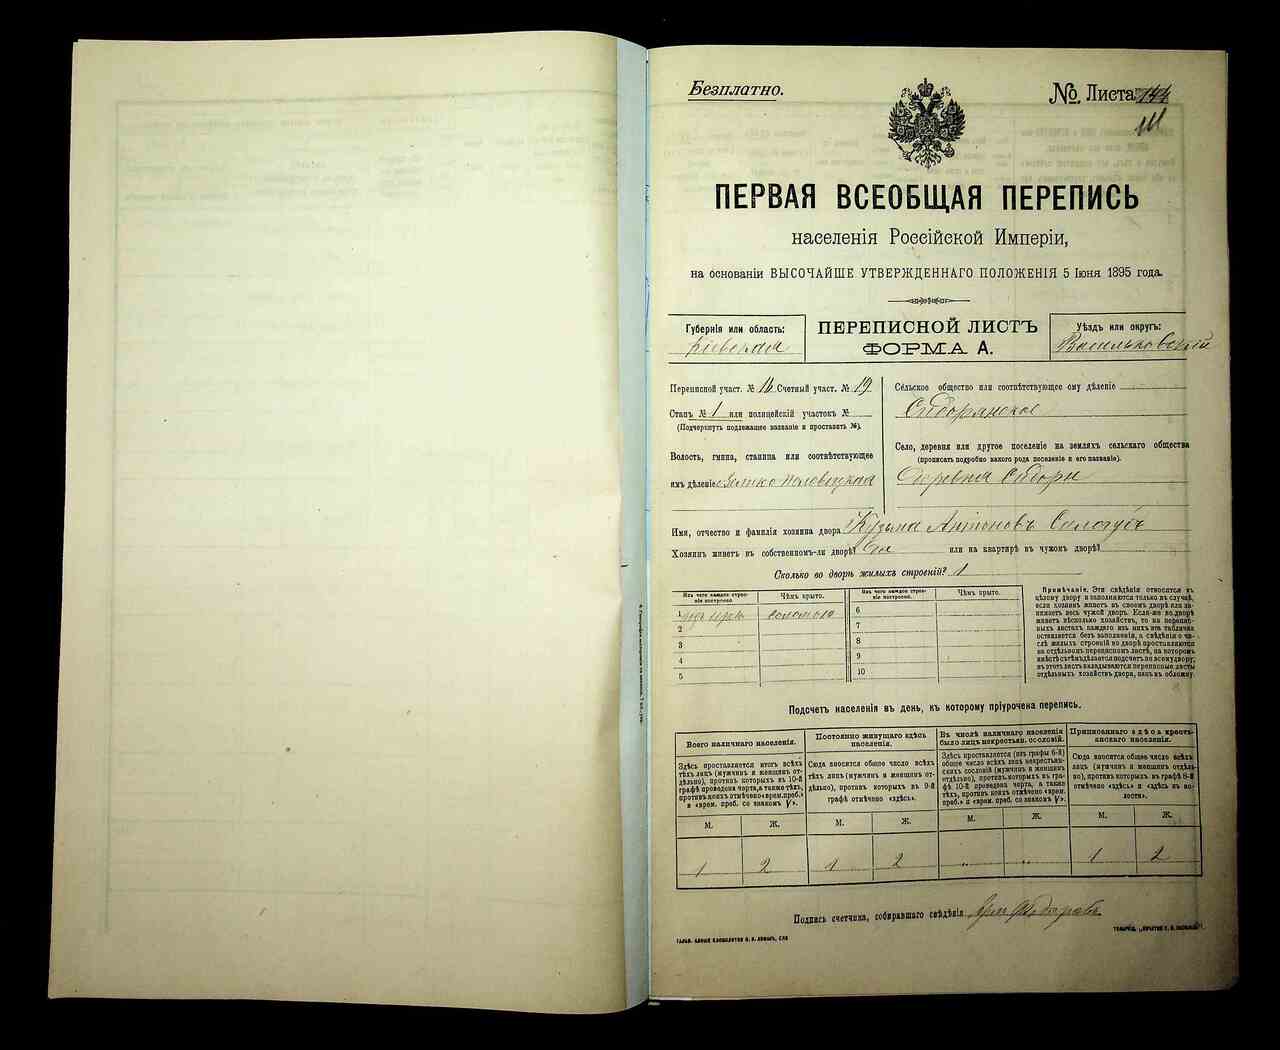 Безплатно.
№ Листа 144
111
ПЕРВАЯ ВСЕОБЩАЯ ПЕРЕПИСЬ
населенія Россійской Имперіи,
на основаніи ВЫСОЧАЙШЕ УТВЕРЖДЕННАГО ПОЛОЖЕНІЯ 5 Іюня 1895 года.
Губернія или область:
Кіевская
ПЕРЕПИСНОЙ ЛИСТЪ
ФОРМА А.
Уѣздъ или округъ:
Васильковскій
Переписной участ. № 16 Счетный участ. № 19
Станъ № 1 или полицейскій участокъ №
(Подчеркнуть подлежащее названіе и проставить №).
Волость, гмина, станица или соотвѣтствующее
имъ дѣленіе Велико Половецкая
Сельское общество или соотвѣтствующее ему дѣленіе
Сидорянское
Село, деревня или другое поселеніе на земляхъ сельскаго общества
(прописать подробно какого рода поселеніе и его названіе).
Деревня Сидоры
Имя, отчество и фамилія хозяина двора Кузьма Антоновъ
Хозяинъ живетъ въ собственномъ-ли дворѣ? Да или на квартирѣ въ чужомъ дворѣ?
Сколько во дворѣ жилыхъ строеній? 1
Изъ чего каждое строеніе построено. Чѣмъ крыто.
1 соломою
2
3
4
5
Изъ чего каждое строеніе построено. Чѣмъ крыто.
6
7
8
9
10
Примѣчаніе. Эти свѣдѣнія относятся къ
цѣлому двору и заполняются только въ случаѣ,
если хозяинъ живетъ въ своемъ дворѣ или занимаетъ весь чужой дворъ. Если-же во дворѣ
живетъ нѣсколько хозяйствъ, то на переписныхъ листахъ каждаго изъ нихъ эта табличка
оставляется безъ заполненія, а свѣдѣнія о числѣ жилыхъ строеній во дворѣ проставляются
на отдѣльномъ переписномъ листѣ, на которомъ
вмѣстѣ съ тѣмъ дѣлается подсчетъ по всему двору;
въ этотъ листъ вкладываются переписные листы
отдѣльныхъ хозяйствъ двора, какъ въ обложку.
Подсчетъ населенія въ день, къ которому пріурочена перепись.
Всего наличнаго населенія.
Здѣсь проставляется итогъ всѣхъ
тѣхъ лицъ (мужчинъ и женщинъ отдѣльно), противъ которыхъ въ 10-й
графѣ проведена черта, а также тѣхъ,
противъ коихъ отмѣчено «врем. преб.»
и «врем. преб. со знакомъ V».
Постоянно живущаго здѣсь
населенія.
Сюда вносится общее число всѣхъ
тѣхъ лицъ (мужчинъ и женщинъ отдѣльно), противъ которыхъ въ 9-й
графѣ отмѣчено «здѣсь».
Въ числѣ наличнаго населенія
было лицъ некрестьян. сословій.
Здѣсь проставляется (изъ графы 6-й)
общее число всѣхъ лицъ некрестьянскихъ сословій (мужчинъ и женщинъ
отдѣльно), противъ которыхъ въ графѣ 10-й проведена черта, а также
тѣхъ, противъ коихъ отмѣчено «врем.
преб.» и «врем. преб. со знакомъ V».
Приписаннаго здѣсь крестьянскаго населенія.
Сюда вносится общее число всѣхъ
лицъ (мужчинъ и женщинъ отдѣльно), противъ которыхъ въ графѣ 8-й
отмѣчено «здѣсь» и «здѣсь въ волости».
М. Ж. М. Ж. М. Ж. М. Ж.
1 2 1 2 " " 1 2
Подпись счетчика, собиравшаго свѣдѣнія